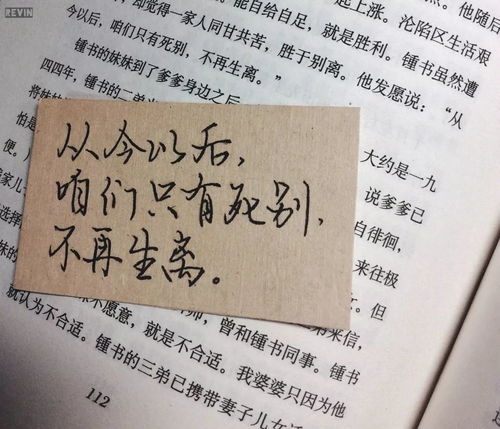 REVIN
起上涨。他随后
却觉得一家人同甘共苦，胜于别离。他发愿说：“从
能自给自足，就是胜利。沦陷区生活艰
今以后，咱们只有死别，不再生离。”
锺书虽然遭
锺书的妹妹到了爹爹身边之后
四四年，锺书的二弟
大约是一九
将妹妹
怕是
说爹爹已
便。
自徘徊，
家儿
来往极
选择
但
妹的
弟来信，
不愿意，就是不合适。
师，曾和锺书同事。锺书
就认为不合适。
我婆婆只因为他
锺书的三弟已携带妻子儿女
112
从今以后，
咱们只有死别，
不再生离。